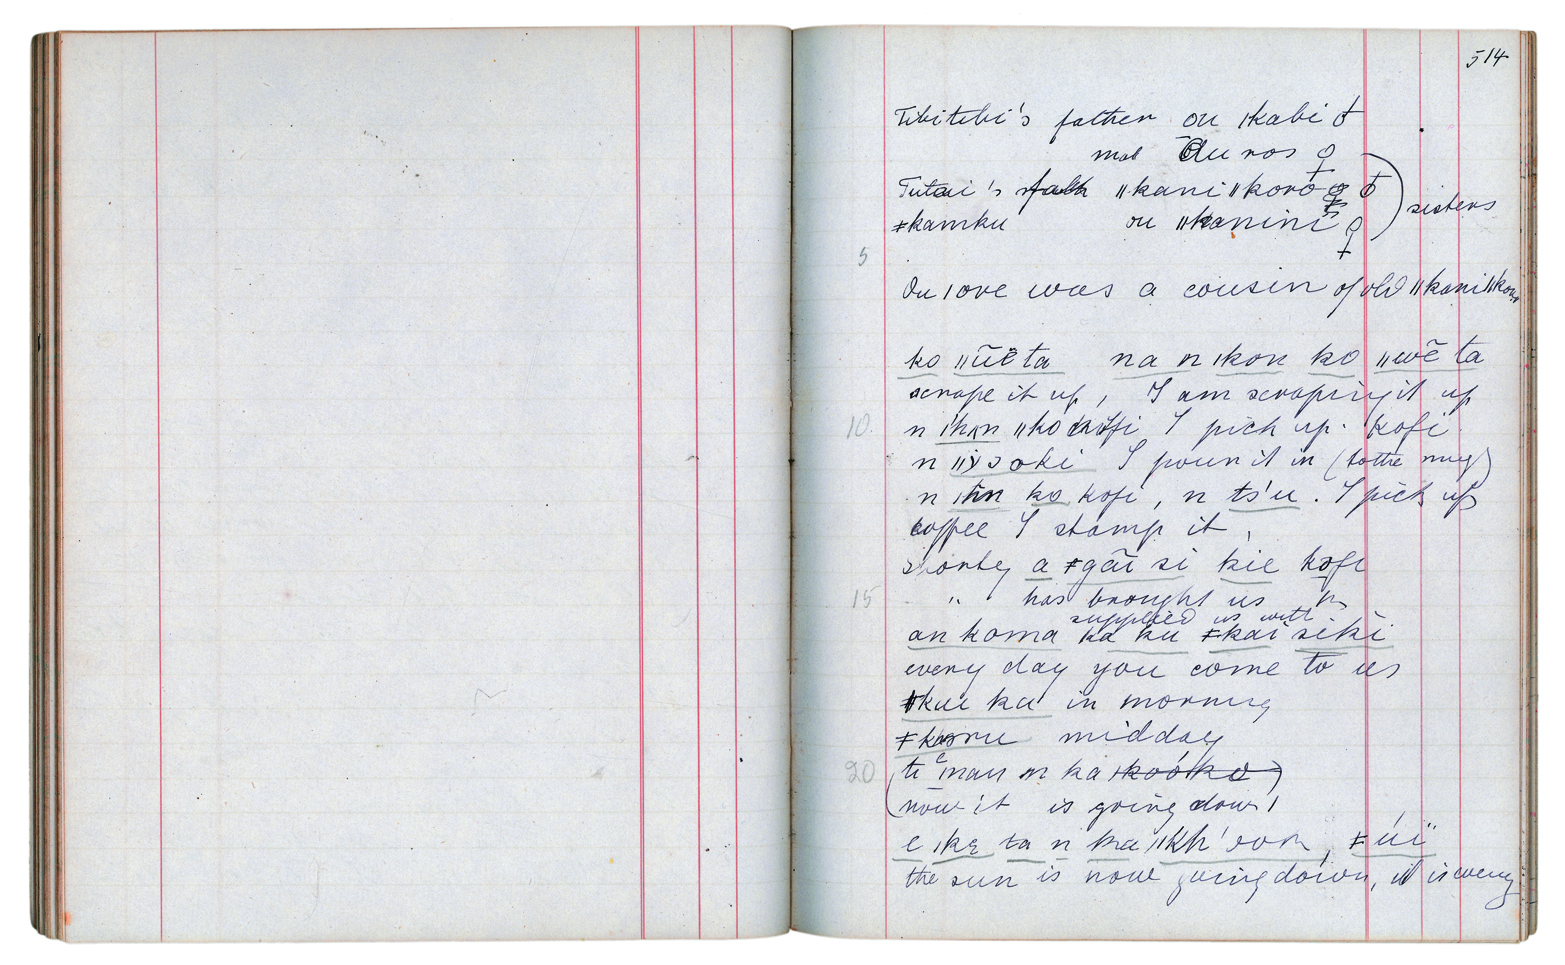 514
Tibitibi's father ou ǀkabi ♂
mob Ōu ros ♀
Tutai's ǁkaniǁkoro ♂
ǂkamku ou ǁkanini ♀
sisters
Ou ǀore was a cousin of old ǁkaniǁkoro
5
ko ǁūĕta na n ǀkon ko ǁwēta
scrape it up, I am scraping it up
10 n ǁko kofi I pick up. Kofi
n soki I pour it in (to the mug)
n ko kofi, n ts'u. I pick up
coffee I stamp it,
shorty a ǂgāī si kie kofi
15 " has brought us
supplied us with
an koma ka ku ǂkai sikĭ
every day you come to us
ǂkuu ka in morning
ǂkoru midday
20 (ti e ǀnau n ka ǀkoóko)
(now it is going down)
e ǀkę ta n ka ǁkh'oon, ǂúï
the sun is now going down, it is eveng